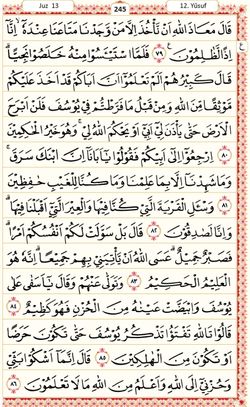 Juz 13
245
12. Yûsuf
قَالَ مَعَاذَ اللّٰهِ اَنْ نَأْخُذَ اِلَّا مَنْ وَجَدْنَا مَتَاعَنَا عِنْدَهُٓ اِنَّٓا
اِذًا لَظَالِمُونَ ﴿٧٩﴾ فَلَمَّا اسْتَيْـَٔسُوا مِنْهُ خَلَصُوا نَجِيًّاۜ
قَالَ كَبِيرُهُمْ اَلَمْ تَعْلَمُٓوا اَنَّ اَبَاكُمْ قَدْ اَخَذَ عَلَيْكُمْ
مَوْثِقًا مِنَ اللّٰهِ وَمِنْ قَبْلُ مَا فَرَّطْتُمْ فِي يُوسُفَۚ فَلَنْ اَبْرَحَ
الْاَرْضَ حَتّٰى يَأْذَنَ لِٓي اَبِٓي اَوْ يَحْكُمَ اللّٰهُ لِيۚ وَهُوَ خَيْرُ الْحَاكِمِينَ
﴿٨٠﴾ اِرْجِعُٓوا اِلٰٓى اَبِيكُمْ فَقُولُوا يَٓا اَبَانَٓا اِنَّ ابْنَكَ سَرَقَۚ
وَمَا شَهِدْنَٓا اِلَّا بِمَا عَلِمْنَا وَمَا كُنَّا لِلْغَيْبِ حَافِظِينَ
﴿٨١﴾ وَسْـَٔلِ الْقَرْيَةَ الَّتِي كُنَّا فِيهَا وَالْعِيرَ الَّتِٓي اَقْبَلْنَا فِيهَاۜ
وَاِنَّا لَصَادِقُونَ ﴿٨٢﴾ قَالَ بَلْ سَوَّلَتْ لَكُمْ اَنْفُسُكُمْ اَمْرًاۜ
فَصَبْرٌ جَمِيلٌۜ عَسَى اللّٰهُ اَنْ يَأْتِيَنِي بِهِمْ جَمِيعًاۜ اِنَّهُ هُوَ
الْعَلِيمُ الْحَكِيمُ ﴿٨٣﴾ وَتَوَلّٰى عَنْهُمْ وَقَالَ يَٓا اَسَفٰى عَلٰى
يُوسُفَ وَابْيَضَّتْ عَيْنَاهُ مِنَ الْحُزْنِ فَهُوَ كَظِيمٌ ﴿٨٤﴾
قَالُوا تَاللّٰهِ تَفْتَؤُ۬ا تَذْكُرُ يُوسُفَ حَتّٰى تَكُونَ حَرَضًا
اَوْ تَكُونَ مِنَ الْهَالِكِينَ ﴿٨٥﴾ قَالَ اِنَّمَٓا اَشْكُوا بَثِّي
وَحُزْنِٓي اِلَى اللّٰهِ وَاَعْلَمُ مِنَ اللّٰهِ مَا لَا تَعْلَمُونَ ﴿٨٦﴾